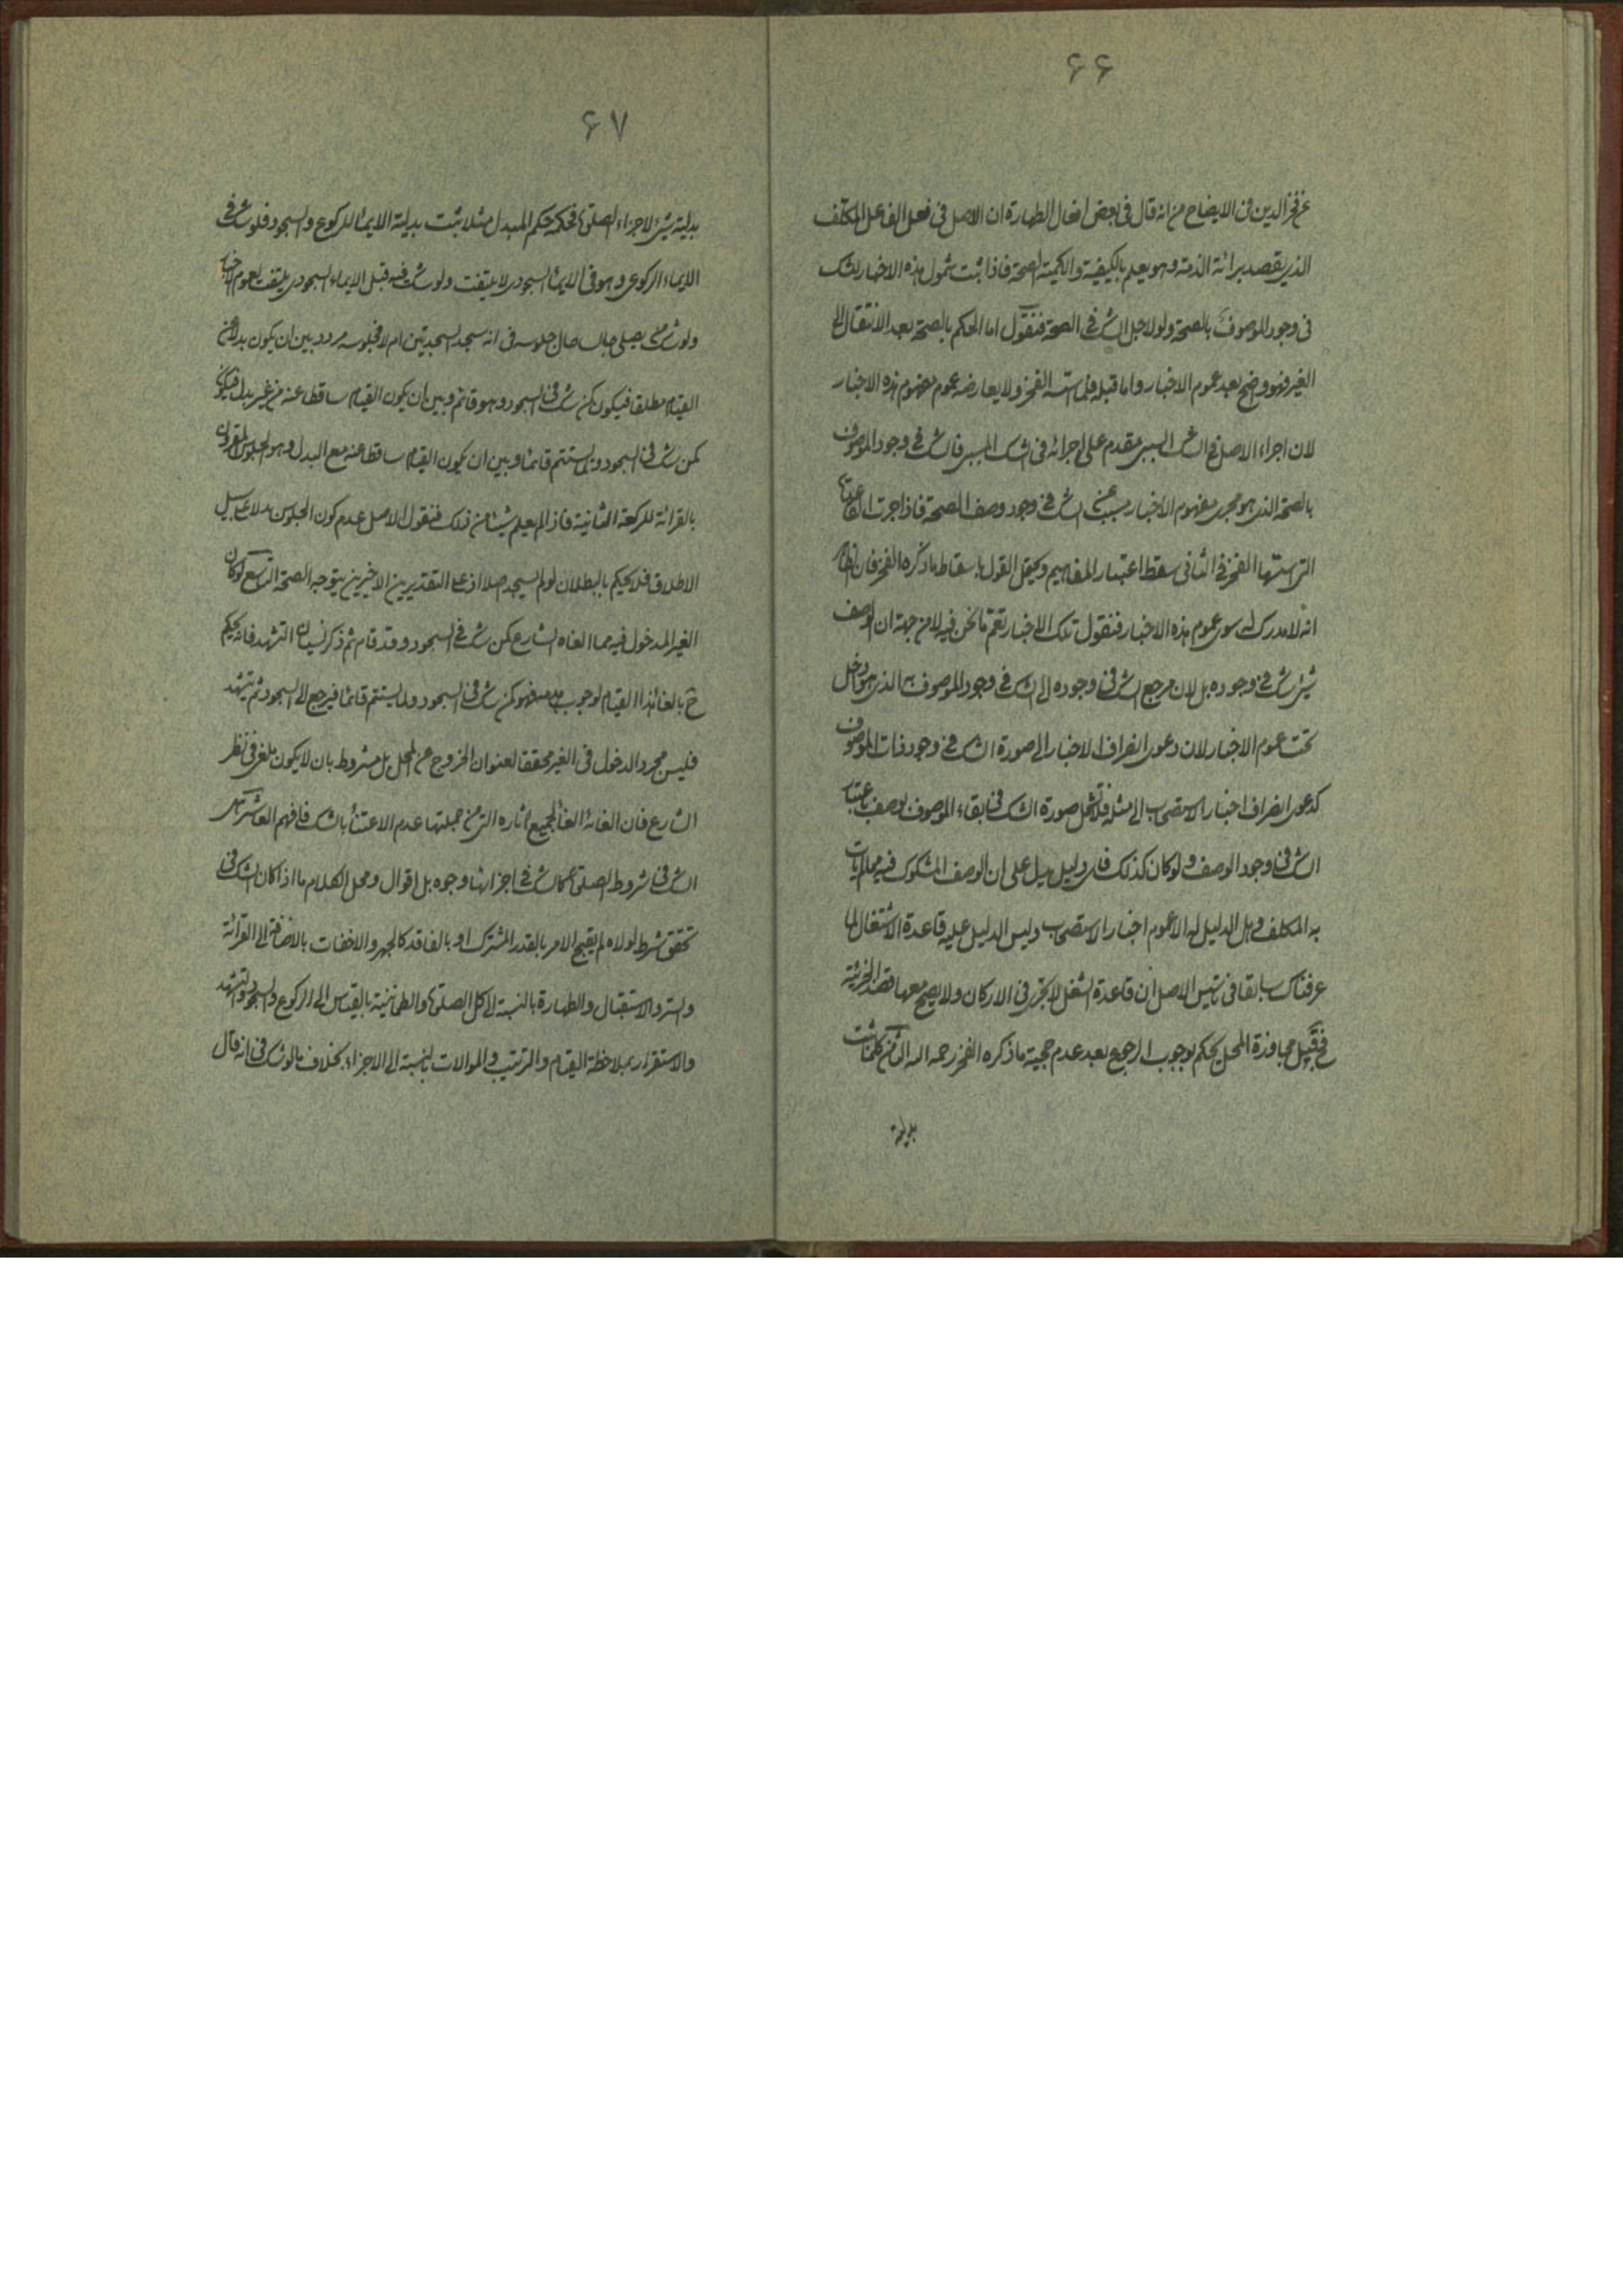 ۶۶
عن فخر الدين في الايضاح من انه قال في بعض افعال الطهارة ان الاصل في فعل الفاعل المكلف
الذي يقصد برائة الذمة وهو يعلم بالكيفية والكمية الصحة فاذا ثبت شمول هذه الاخبار للشك
في وجود الموصوف بالصحة ولو لاجل الشك في الصحة فنقول اما الحكم بالصحة بعد الانتقال الى
الغير فهو واضح بعد عموم الاخبار واما قبله فلما اسسه الفخر ولا يعارضه عموم مفهوم هذه الاخبار
لان اجراء الاصل في الشك السببي مقدم على اجرائه في الشك المسببي فالشك في وجود الموصوف
بالصحة الذي هو مجرى مفهوم الاخبار مسبب عن الشك في وجود وصف الصحة فاذا جرت القاعدة
التي اسسها الفخر في الثاني سقط اعتبار المفاهيم ويحتمل القول باسقاط ما ذكره الفخر فان الظاهر
انه لا مدرك له سوى عموم هذه الاخبار فنقول تلك الاخبار تعم ما نحن فيه لا من جهة ان الوصف
شيئ شك في وجوده بل لان مرجع الشك في وجوده الى الشك في وجود الموصوف به الذي هو داخل
تحت عموم الاخبار لان دعوى انصراف الاخبار الى صورة الشك في وجود ذات الموصوف
كدعوى انصراف اخبار الاستصحاب الى مثله فلا تشمل صورة الشك في بقاء الموصوف بوصف باعتبار
الشك في وجود الوصف ولو كان كذلك فاي دليل يدل على ان الوصف المشكوك فيه مما لم يات
به المكلف وهل الدليل له الا عموم اخبار الاستصحاب وليس الدليل عليه قاعدة الاشتغال لما
عرفناك سابقا في تاسيس الاصل ان قاعدة الشغل لا تجري في الاركان ولا يصح معها قصد الجزئية
فح فقبل مجاوزة المحل يحكم بوجوب الرجوع بعد عدم حجية ما ذكره الفخر رحمه الله الثامن كلما ثبت
بدلية
۶۷
بدلية شيئ لاجزاء الصلوة فحكمه حكم المبدل مثلا ثبت بدلية الايماء للركوع والسجود فلو شك في
الايماء الركوعي وهو في الايماء السجودي لا يلتفت ولو شك فيه قبل الايماء السجودي يلتفت لعموم الاخبار
ولو شك من يصلي جالسا حال جلوسه في انه سجد السجدتين ام لا فجلوسه مردد بين ان يكون بدلا عن
القيام مطلقا فيكون كمن شك في السجود وهو قائم وبين ان يكون القيام ساقطا عنه من غير بدل فيكون
كمن شك في السجود ولما يستتم قائما وبين ان يكون القيام ساقطا عنه مع البدل وهو الجلوس المقرون
بالقرائة للركعة الثانية فاذ لم يعلم شيئا من ذلك فنقول الاصل عدم كون الجلوس بدلا على سبيل
الاطلاق فلا يحكم بالبطلان لو لم يسجد اصلا اذ على التقديرين الاخيرين يتوجه الصحة التاسع لو كان
الغير المدخول فيه مما الغاه الشارع كمن شك في السجود وقد قام ثم ذكر نسيان التشهد فانه يحكم
ح بالغاء هذا القيام لوجوب هدمه فهو كمن شك في السجود ولما يستتم قائما فيرجع الى السجود ثم يتشهد
فليس مجرد الدخول في الغير محققا لعنوان الخروج عن المحل بل مشروط بان لا يكون ملغى في نظر
الشارع فان الغائه الغاء لجميع اثاره التي من جملتها عدم الاعتناء بالشك فافهم العاشر هل
الشك في شروط الصلوة كالشك في اجزائها وجوه بل اقوال ومحل الكلام ما اذا كان الشك في
تحقق شرط لولاه لم يقبح الامر بالقدر المشترك او بالفاقد كالجهر والاخفات بالاضافة الى القرائة
والستر والاستقبال والطهارة بالنسبة الى كل الصلوة والطمانينة بالقياس الى الركوع والسجود والتشهد
والاستقرار بملاحظة القيام والترتيب والموالات بالنسبة الى الاجزاء بخلاف ما لو شك في انه قال